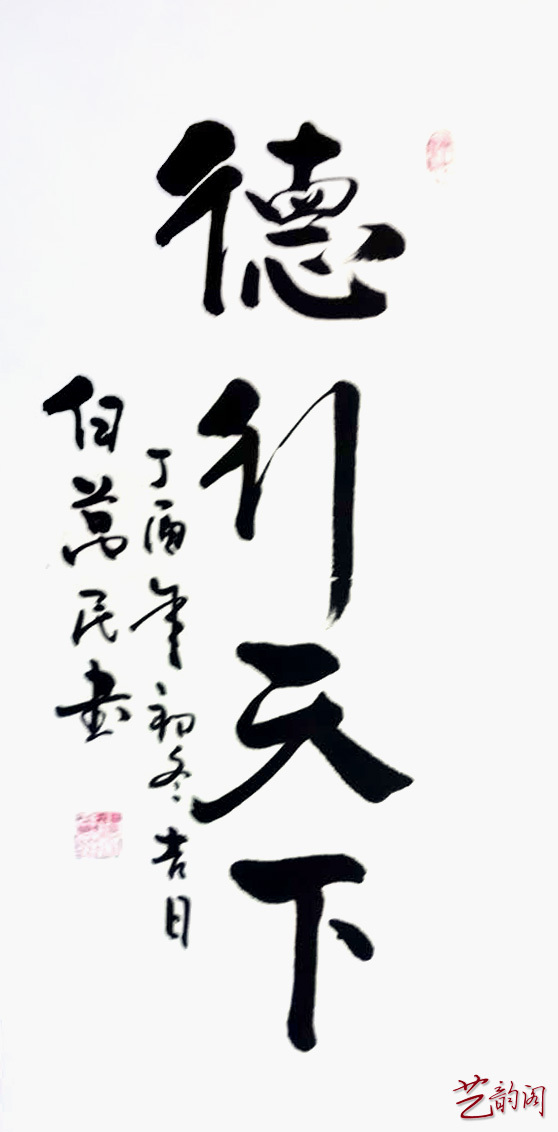 德行天下
丁酉年初冬吉日
白萬民書
艺韵阁